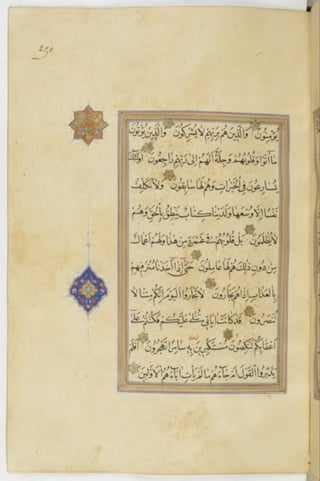 يُؤْمِنُونَ وَالَّذِينَ هُمْ بِرَبِّهِمْ لَا يُشْرِكُونَ وَالَّذِينَ يُؤْتُونَ
مَا آتَوْا وَقُلُوبُهُمْ وَجِلَةٌ أَنَّهُمْ إِلَى رَبِّهِمْ رَاجِعُونَ أُولَئِكَ
يُسَارِعُونَ فِي الْخَيْرَاتِ وَهُمْ لَهَا سَابِقُونَ وَلَا نُكَلِّفُ
نَفْسًا إِلَّا وُسْعَهَا وَلَدَيْنَا كِتَابٌ يَنْطِقُ بِالْحَقِّ وَهُمْ
لَا يُظْلَمُونَ بَلْ قُلُوبُهُمْ فِي غَمْرَةٍ مِنْ هَذَا وَلَهُمْ أَعْمَالٌ
مِنْ دُونِ ذَلِكَ هُمْ لَهَا عَامِلُونَ حَتَّى إِذَا أَخَذْنَا مُتْرَفِيهِمْ
بِالْعَذَابِ إِذَا هُمْ يَجْأَرُونَ لَا تَجْأَرُوا الْيَوْمَ إِنَّكُمْ مِنَّا لَا
تُنْصَرُونَ قَدْ كَانَتْ آيَاتِي تُتْلَى عَلَيْكُمْ فَكُنْتُمْ عَلَى
أَعْقَابِكُمْ تَنْكِصُونَ مُسْتَكْبِرِينَ بِهِ سَامِرًا تَهْجُرُونَ أَفَلَمْ
يَدَّبَّرُوا الْقَوْلَ أَمْ جَاءَهُمْ مَا لَمْ يَأْتِ آبَاءَهُمُ الْأَوَّلِينَ